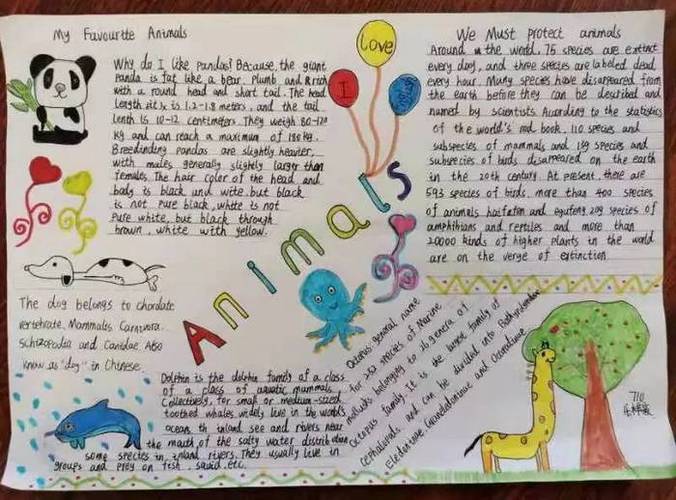 My Favourite Animals
Why do I like pandas? Because, the giant
panda is fat like a bear. Plumb and & rich
with a round head and short tail. The head
length is 1.2-1.8 meters, and the tail
lenth is 10-12 centimeters. They weigh 80-120
kg and can reach a maximum of 180 kg.
Breedinding pandas are slightly heavier,
with males generally slightly larger than
females. The hair color of the head and
body is black und wite. but black
is not pure black, white is not
pure white, but black through
brown, white with yellow.
The dog belongs to chordate
vertebrate, Mammalis Carnivora
Schizopodia and Canidae. Also
know as "dog" in Chinese.
Animals
I
love
We Must protect animals
Around the world, 75 species are extinct
every day, and three species are labeled dead
every hour. Many species have disappeared from
the earth before they can be described and
named by scientists. According to the statistics
of the world's red book, 110 species and
subspecies of mammals and 139 species and
subspecies of birds disappeared on the earth
in the 20th century. At present, there are
593 species of birds, more than 400 species
of animals, 209 species of
amphibians and reptiles and more than
20000 kinds of higher plants in the world
are on the verge of extinction.
Dolphin is the dolphin family of a class
of a class of aquatic mammals.
Collectively, for small or medium-sized
toothed whales, widely live in the world's
ocean, th inland sea and rivers near
the mouth of the salty water
some species in inland rivers. They usually live in
groups and prey on fish, squid, etc.
Octopus general name
for 252 species of Marine
mollusks belonging to 26 genera of
Octopus family. It is the largest family of
cephalopods, and can be divided into
Eledoninae, Graneledoninae and Octopodinae
710